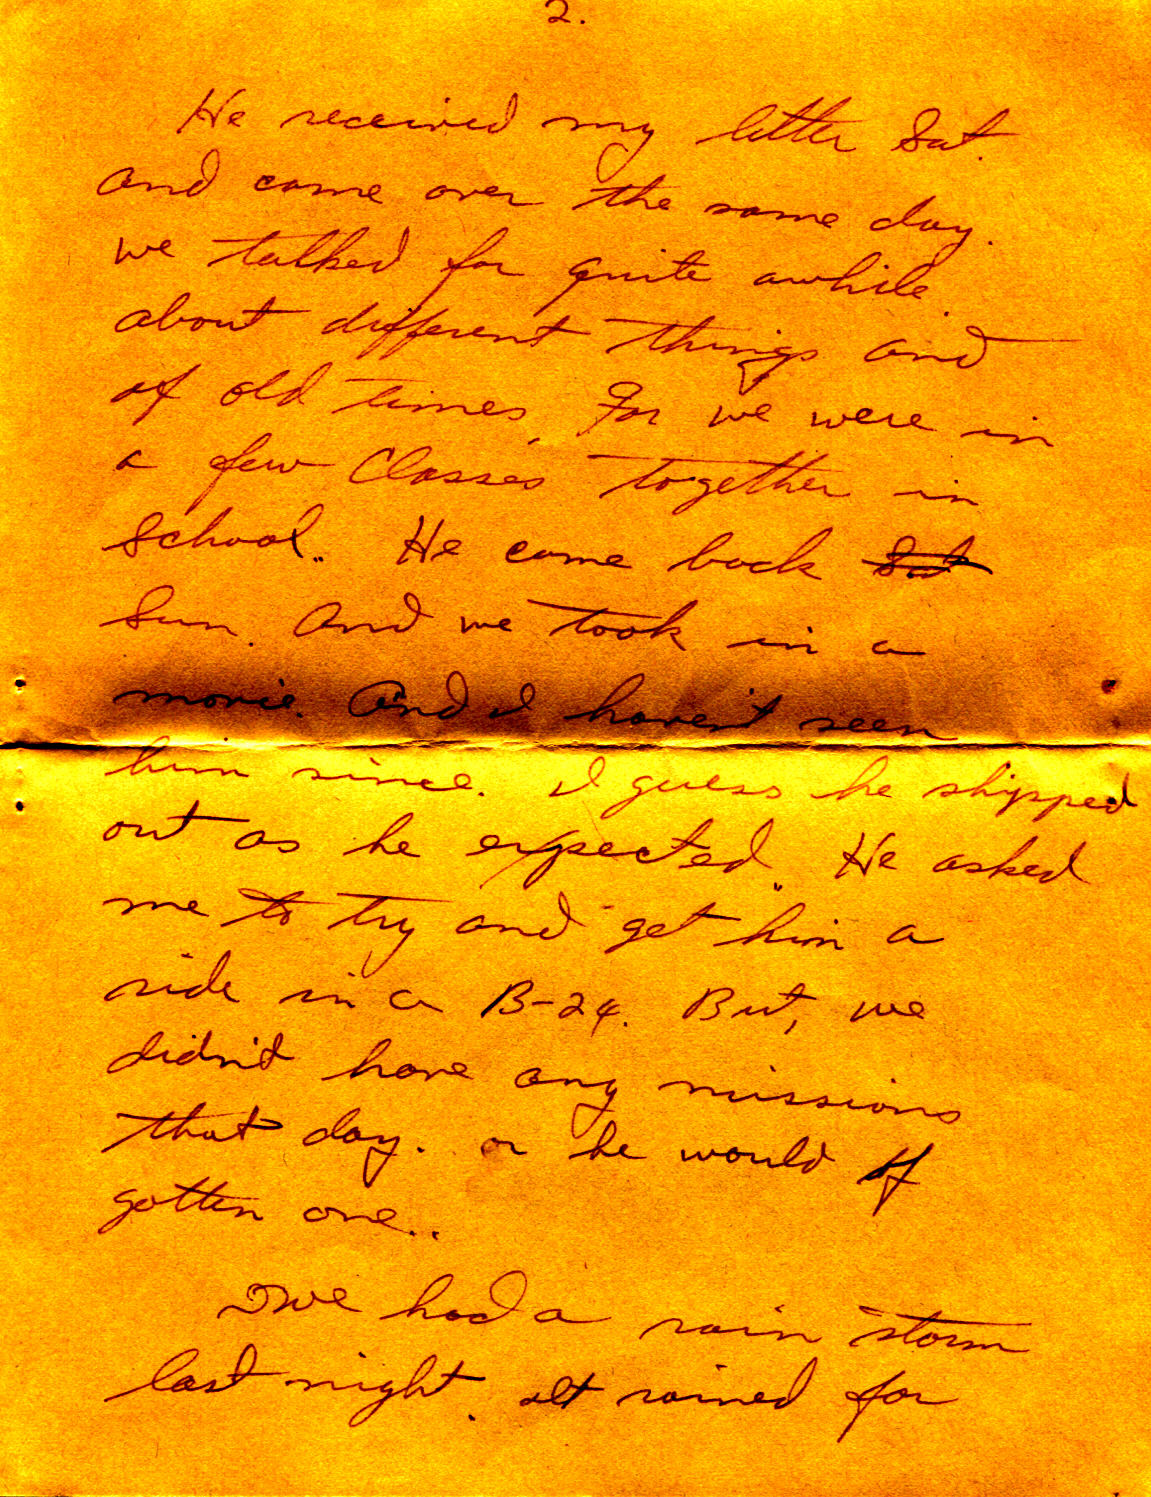 2.
He received my letter Sat.
and came over the same day.
we talked for quite awhile
about different things and
of old times. For we were in
a few Classes together in
School.. He came back Sat
Sun. And we took in a
movie. And I haven't seen
him since. I guess he shipped
out as he expected.. He asked
me to try and get him a
ride in a B-24. But, we
didn't have any missions
that day. or he would of
gotten one..
we had a rain storm
last night. It rained for